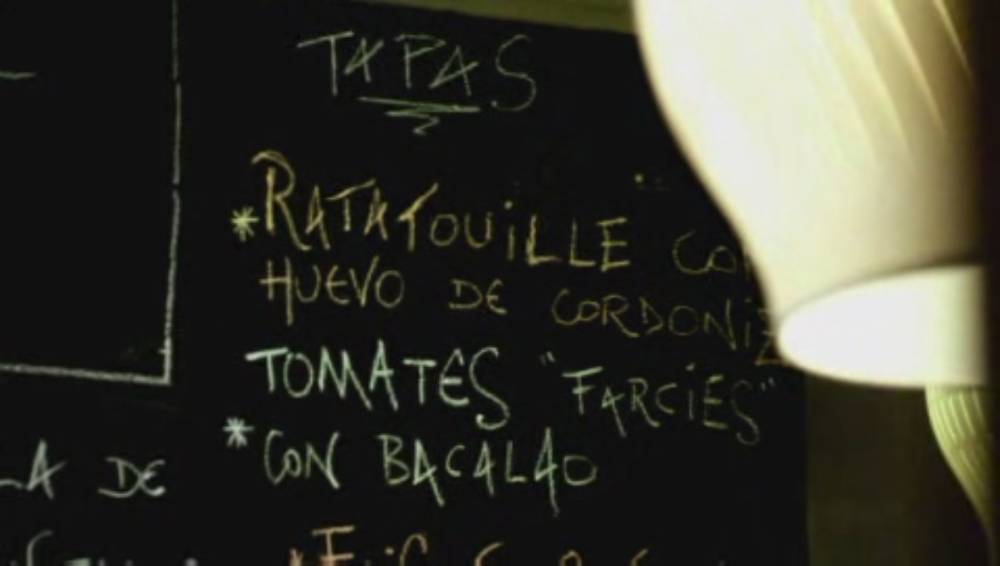 TAPAS
*RATATOUiLLE CON
HUEVO DE CORDONiZ
TOMATES "FARCiES"
*CON BACALAO
LA DE